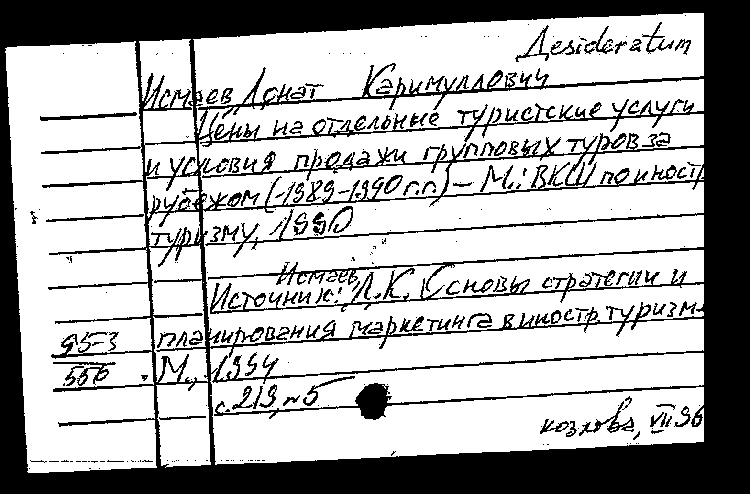 Desideratum
Исмаев Донат Каримуллович
Цены на отдельные туристские услуги
и условия продажи групповых туров за
рубежом (-1989-1990 г.г.) – М.: ВК(И) по иностр
туризму, 1990
Исмаев,
Источник: Д.К. Основы стратегии и
95-3 планирования маркетинга в иностр. туризме
556 М., 1994
с. 213, №5
козлова, VII 96